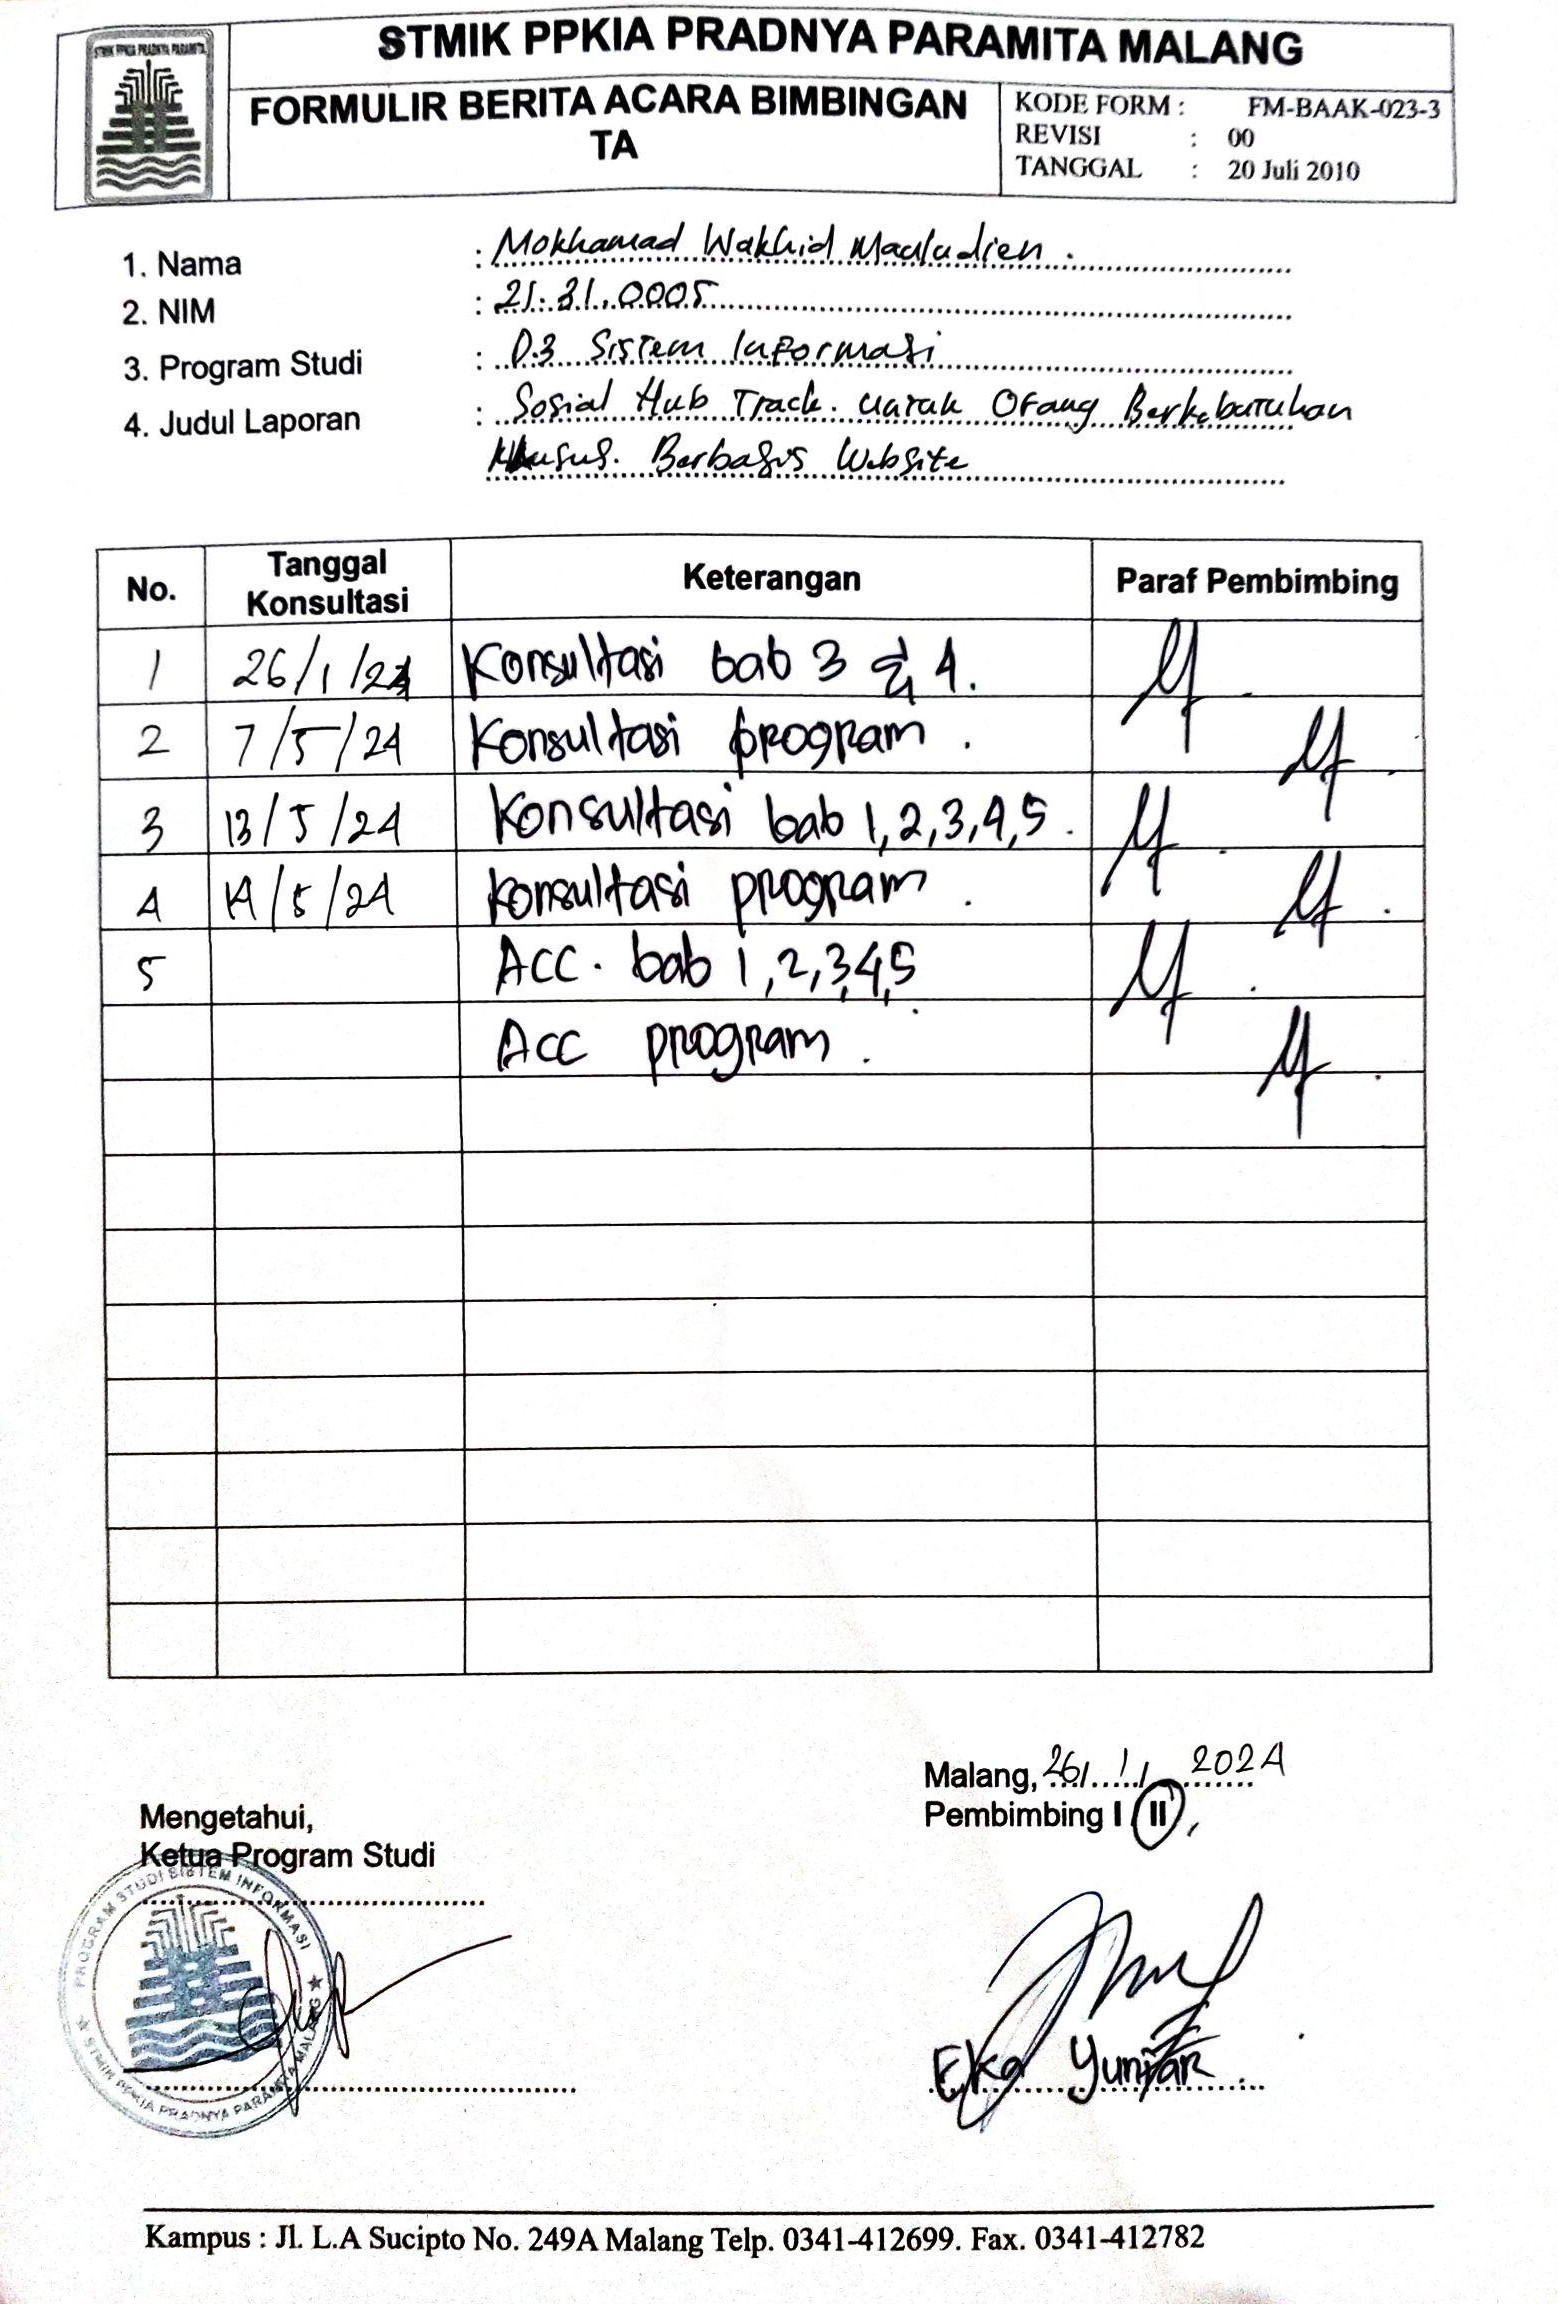 STMIK PPKIA PRADNYA PARAMITA
STMIK PPKIA PRADNYA PARAMITA MALANG
FORMULIR BERITA ACARA BIMBINGAN
TA
KODE FORM : FM-BAAK-023-3
REVISI : 00
TANGGAL : 20 Juli 2010
1. Nama : Mokhamad Wakhid Mauludien .
2. NIM : 21.31.0005
3. Program Studi : D.3 Sistem Informasi
4. Judul Laporan : Sosial Hub Track. untuk Orang Berkebutuhan
Khusus. Berbasis Website
No. Tanggal Konsultasi Keterangan Paraf Pembimbing
1 26/1/24 Konsultasi bab 3 & 4.
2 7/5/24 Konsultasi program .
3 13/5/24 Konsultasi bab 1,2,3,4,5 .
4 14/5/24 Konsultasi program .
5 ACC. bab 1,2,3,4,5
Acc program .
Malang, 26/1/2024
Pembimbing I II,
Mengetahui,
Ketua Program Studi
PROGRAM STUDI SISTEM INFORMASI
STMIK PPKIA PRADNYA PARAMITA MALANG
Eka Yuniar
Kampus : Jl. L.A Sucipto No. 249A Malang Telp. 0341-412699. Fax. 0341-412782